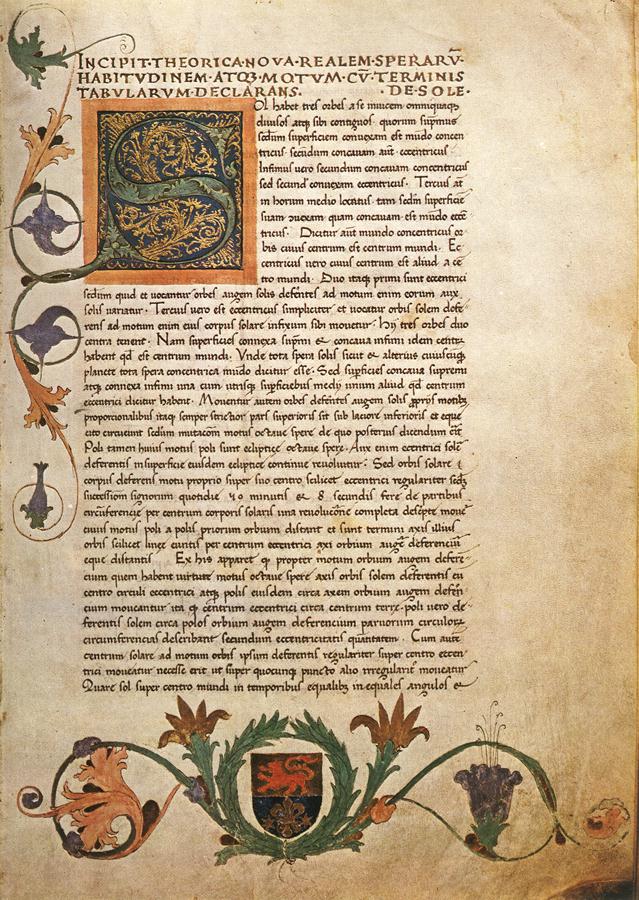 INCIPIT·THEORICA·NOVA·REALEM·SPERARŪ·
HABITVDINEM·ATQꝪ·MOTVM·CV̄·TERMINIS
TABVLARVM·DECLARANS. ·DE·SOLE·
Sol habet tres orbes a se inuicem omniquaqꝫ
diuisos atqꝫ sibi contiguos quorum supmus
scdm superficiem conuexam est mūdo concen
tricus· secūdum concauam aūt· eccentricus·
Infimus uero secundum concauam concentricus
sed secund' conuexam eccentricus· Tercius aūt
in horum medio locatus tam scdm superficiē
suam conuexam quam concauam est mūdo eccē
tricus· Dicitur aūt mundo concentricus or
bis cuius centrum est centrum mundi. Ec
centricus uero cuius centrum est aliud a cē
tro mundi· Duo itaqꝫ primi sunt eccentrici
scdm quid et uocantur orbes augem solis defētes ad motum enim eorum aux
solis uariatur· Tercius uero est eccentricus simpliciter et uocatur orbis solem defe
rens ad motum enim eius corpus solare infixum sibi mouetur· Hij tres orbes duo
centra tenent· Nam superficies connexa supmi et concaua infimi idem centrū
habent qd est centrum mundi· Vnde tota spera solis sicut et alterius cuiuscūqꝫ
planete tota spera concentrica mūdo dicitur esse· Sed supficies concaua supremi
atqꝫ connexa infimi una cum utrisqꝫ supficiebus medij unum aliud qd centrum
eccentrici dicitur habent· Mouentur autem orbes defētes augem solis pprijs motibꝫ
proporcionalibus itaqꝫ semper strictior pars superioris sit sub laciore inferioris et eque
cito circueunt scdum mutacōm motus octaue spere de quo posterius dicendum erit
Poli tamen huius motus poli sunt ecliptice octaue spere· Aux enim eccentrici solē
deferentis in superficie eiusdem ecliptice continue reuoluitur· Sed orbis solare
corpus deferens motu proprio super suo centro scilicet eccentrici regulariter scdꝫ
successiōm signorum quotidie 59 minutis et 8 secundis fere de partibus
circūferencie per centrum corporis solaris una reuolucōne completa descpte mouet̄
cuius motus poli a polis priorum orbium distant et sunt termini axis illius
orbis scilicet linee euntis per centrum eccentrici axi orbium augē deferenciū
eque distantis Ex his apparet q propter motum orbium augem defere-
cium quem habent uirtute motus octaue spere axis orbis solem deferentis cū
centro circuli eccentrici atqꝫ polis eiusdem circa axem orbium augem defērē
cium moueantur ita q centrum eccentrici circa centrum terre· poli uero de-
ferentis solem circa polos orbium augem deferencium paruorum circulorꝫ
circumferencias describant secundum eccentricitatis quātitatem· Cum aūt
centrum solare ad motum orbis ipsum deferentis regulariter super centro eccen-
trici moueatur necesse erit ut super quocunqꝫ puncto alio irregularit' moueatur
Quare sol super centro mundi in temporibus equalibꝫ inequales angulos et